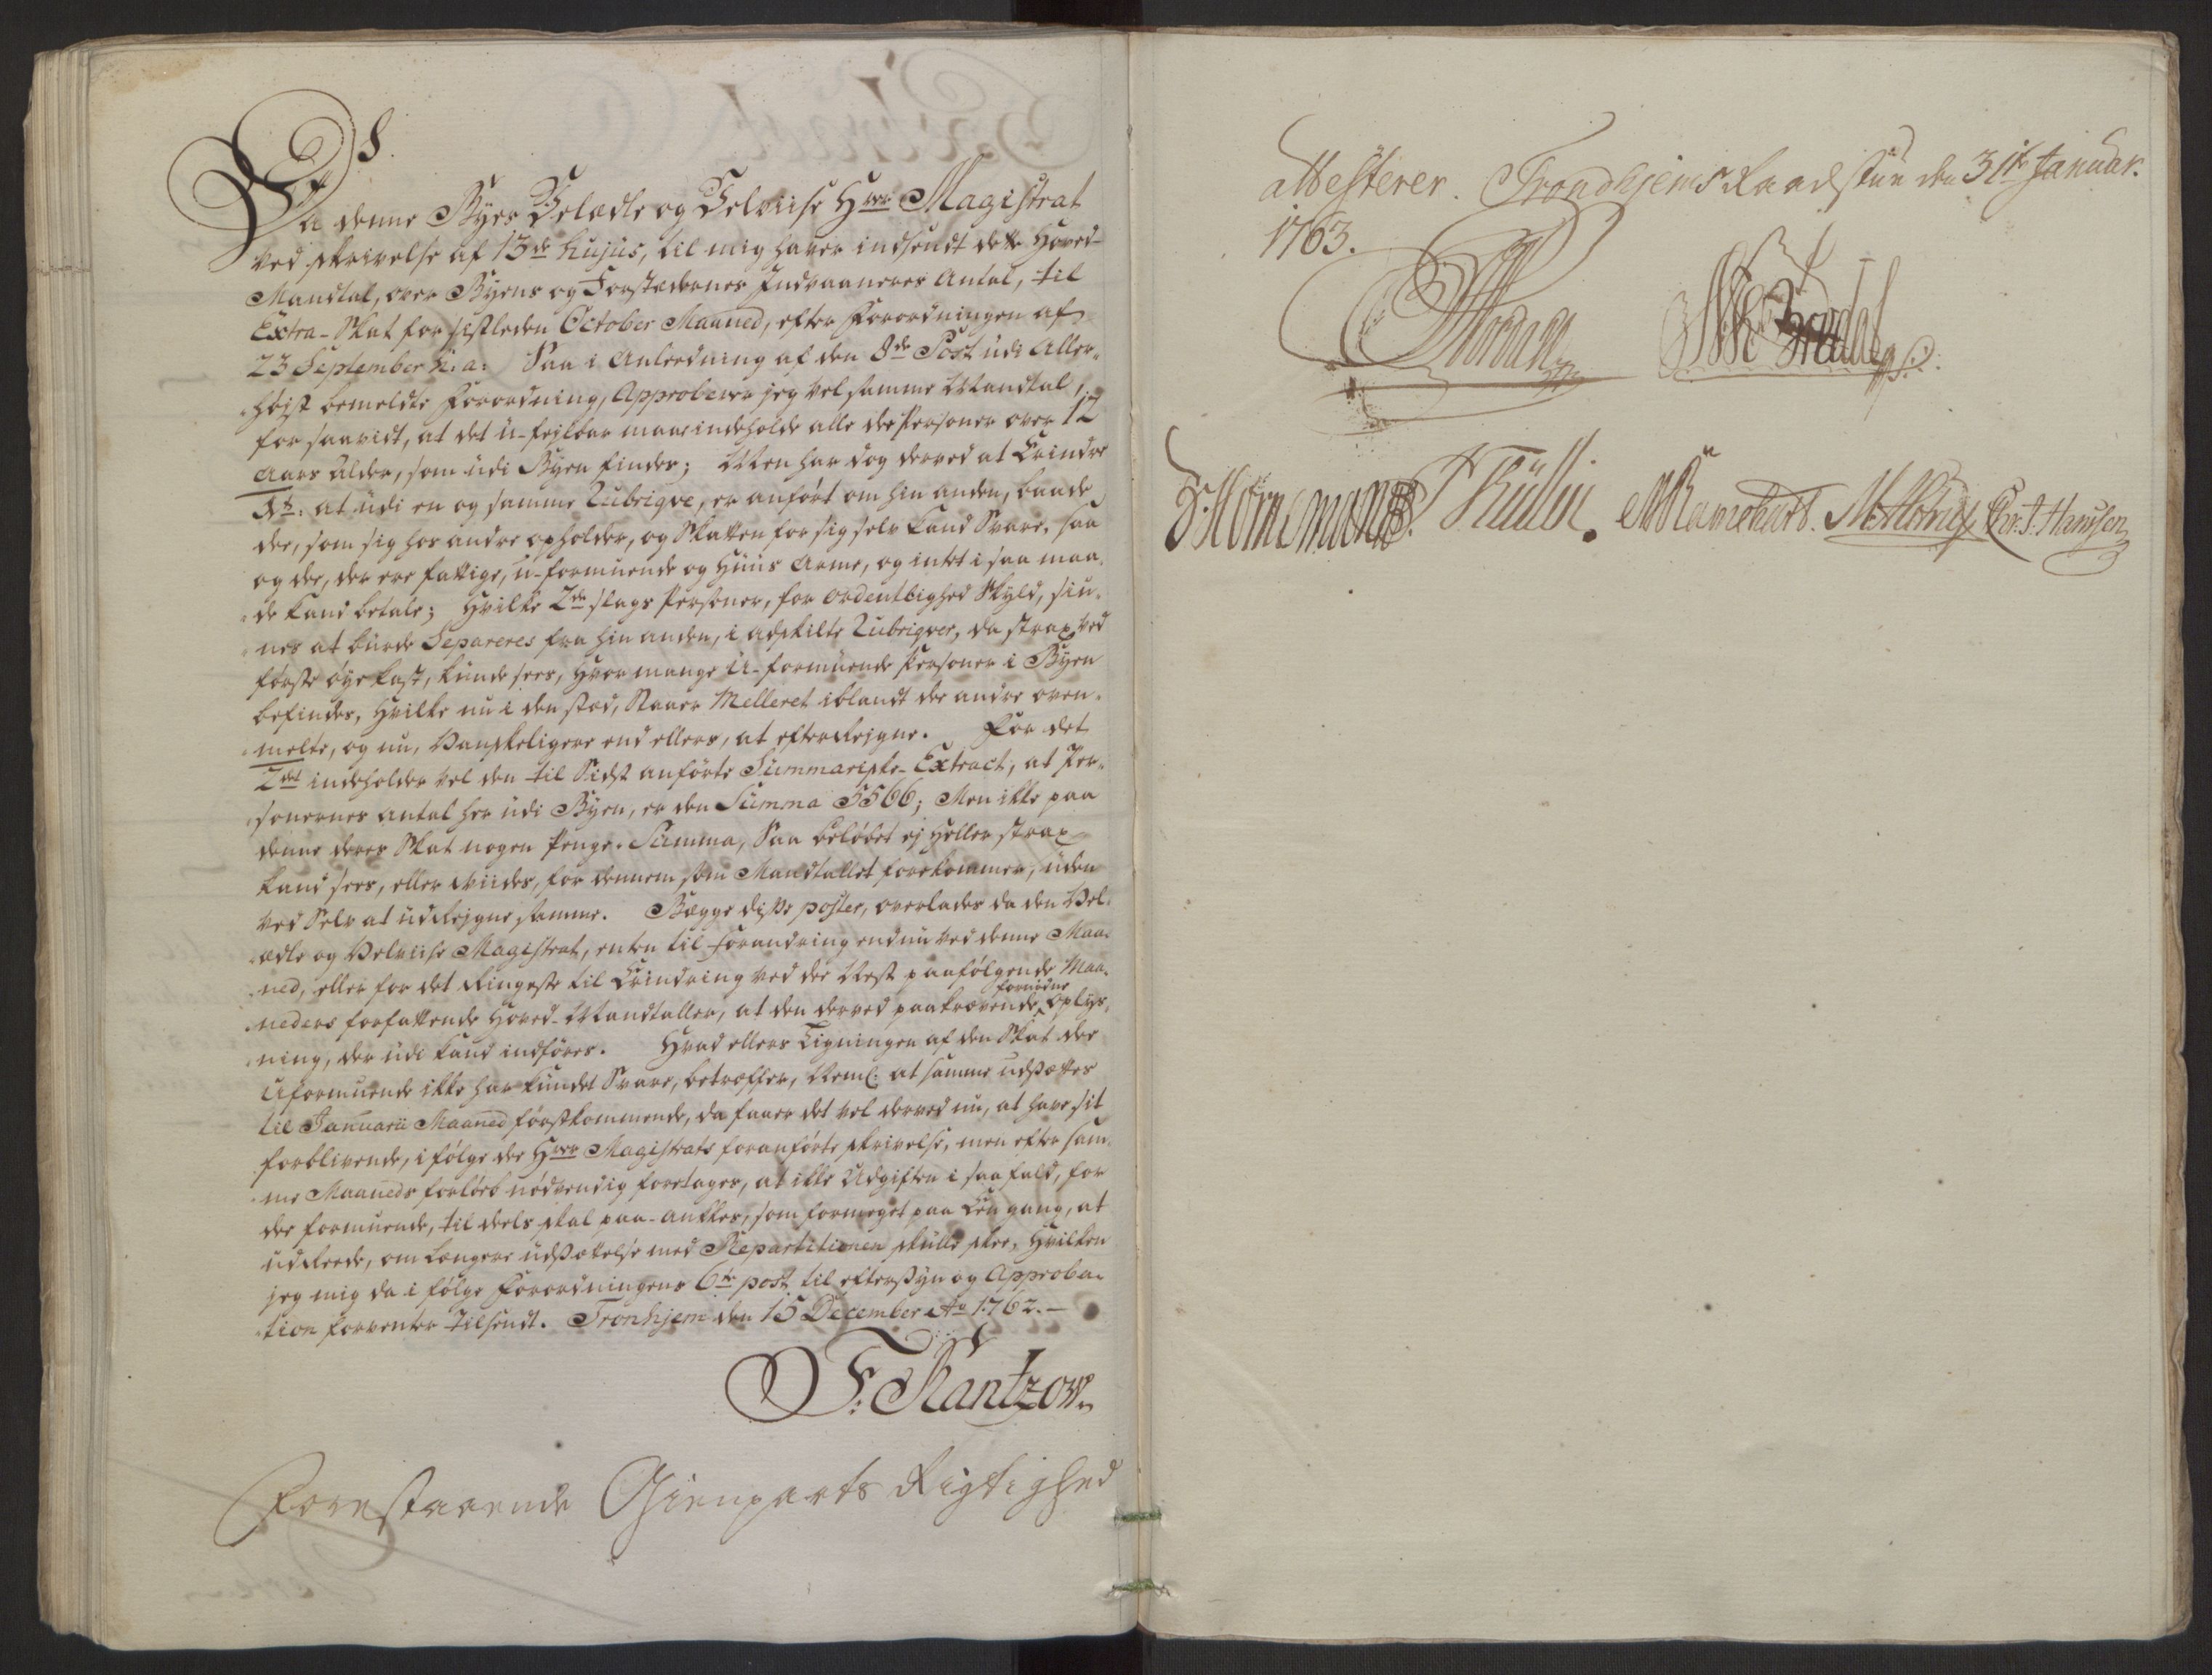 S.
Da denne Byes Velædle og Velviise Hrer Magistrat
ved skrivelse af 13de hujus, til mig haver indsendt dette Hoved-
Mandtal, over Byens og Forstædernes Indvaaneres Antal, til
Extra-Skat for sistleden October Maaned, efter Forordningen af
23 September h: a: Saa i Anledning af den 8de Post udi Aller-
højst bemeldte Forordning, Approberer jeg vel samme Mandtal,
for saavidt, at det u-fejlbar maae indeholde alle de Personer over 12
Aars Alder, som udi Byen findes; Men har dog derved at Erindre
1st: at udi en og samme Rubriqve, er anført om hin anden, baade
de, som sig hos andre opholder, og Skatten for sig selv kand Svare, saa
og de, der ere fattige, u-formuende og Huus Arme, og intet i saa maa-
de kand betale; Hvilke 2de slags Personer, for ordentlighed Skyld, siu-
nes at burde Separeres fra hin anden, i adskilte Rubriqver, da strax ved
første øye kast, kunde sees, Hvor mange U-formuende Personer i Byen
befindes, Hvilke nu i den sted, Staaer Melleret iblandt de andre oven-
melte, og nu, Vanskeligere end ellers, at efterRejgne. For det
2det indeholder vel den til Sidst anførte Summariske-Extract, at Per-
sonernes antal her udi Byen, er den Summa 5566; Men ikke paa
denne deres Skat nogen Penge-Summa, Saa beløbet ej heller strax
kand sees, eller viides, for dennem som Mandtallet forekommer, uden
ved Selv at udRejgne samme. Begge disse poster, overlades da den Vel-
ædle og Velviise Magistrat, enten til forandring endnu ved denne Maa-
ned, eller for det Ringeste til Erindring ved de Nest paafølgende Maa-
neders forfattende Hoved-Mandtaller, at den derved paakrævende fornødne oplys-
ning, der udi kand indføres. Hvad ellers Ligningen af den Skat de
Uformuende ikke har kundet Svare, betræffer, Neml: at samme udsættes
til Januarii Maaned førstkommende, da faaer det vel derved nu, at have sit
forblivende, i følge de Hrer Magistrats foranførte skrivelse, men efter sam-
me Maaneds forløb nødvendig foretages, at ikke Udgiften i saa fald, for
de formuende, til deels skal paa-ankes, som formeget paa Een gang, at
udReede, om længere udsættelse med Repartitionen skulle skee, Hvilken
jeg mig da i følge Forordningens 6te post til eftersyn og Approba-
tion forventer tilsendt. Tronhjem den 15 December Ao 1762.-
F: Rantzow.
Forestaaende Gienparts Rigtighed
attesterer. Trondhjems Raadstue den 31te Januar.
1763.
Hornemann. M Ramshart. Chr. J. Hansen